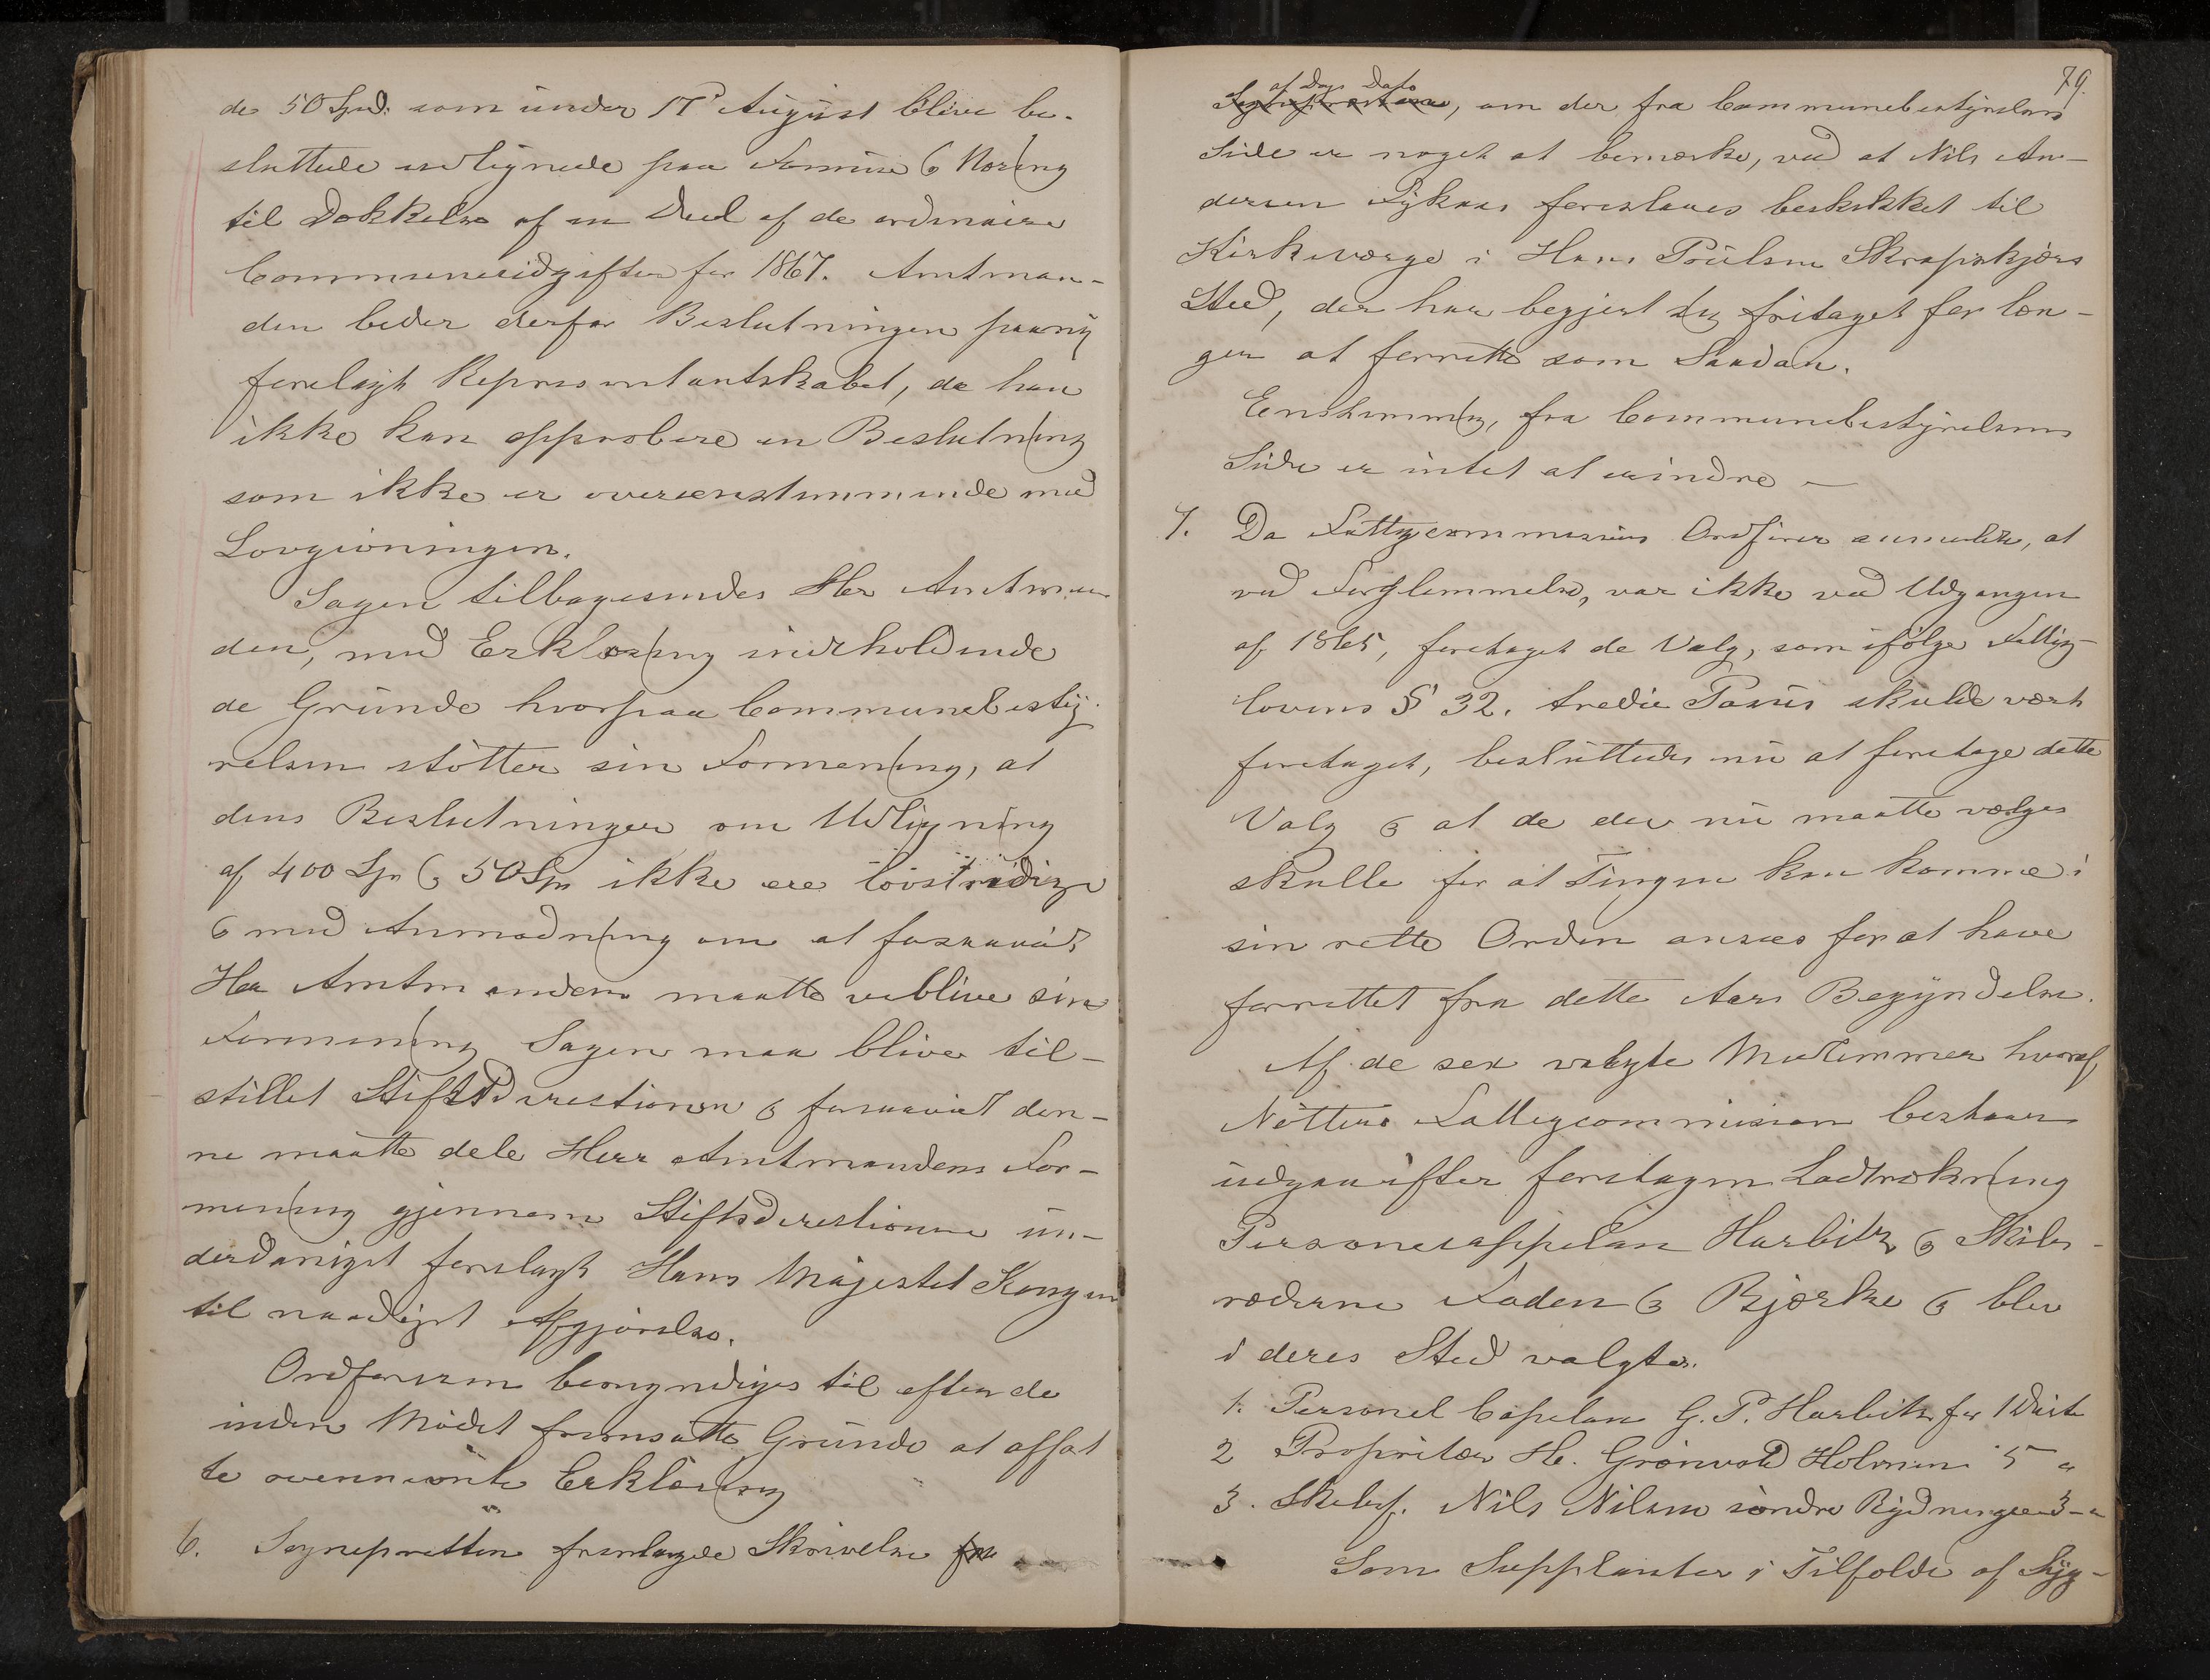 de 50 Spd. som under 17de August blive be-
sluttede udlignede paa Formue & Næring
til Dækkelse af en Deel af de ordinaire
Communeudgifter for 1867. Amtman-
den beder derfor Beslutningen paany
forelagt Repræsentantskabet, da han
ikke kan approbere en Beslutning
som ikke er overeenstemmende med
Lovgivningen.
Sagen tilbagesendes Hr Amtman
den, med Erklæring inderholdende
de Grunde hvorpaa Communebesty-
relsen støtter sin Formening, at
dens Beslutninger om Udligning
af 400 Spd & 50 Spd ikke ere lovstridige
& med Anmodning om at forsaavidt
Her Amtmanden maatte vedblive sin
Formening Sagen maa blive til-
stillet Stiftsdirectionen & forsaavidt den-
ne maatte dele Herr Amtmandens For-
mening gjennem Stiftsdirectionen un-
derdanigst forelagt Hans Majestet Kongen
til naadigst Afgjørelse.
Ordføreren bemyndiges til efter de
inden Mødet fremsatte Grunde at affat
te ovennævnte Erklæring
6. Sognepresten fremlagde Skrivelse fra
79.
af Dags Dato
Sognepresten, om der fra Communebestyrelsens
Side er noget at bemærke, ved at Nils An-
dersen Fykaas foreslaaes beskikket til
Kirkeværge i Hans Poulsen Skrapekjærs
Sted, der har begjert sig fritaget for læn-
ger at forrette som Saadan.
Eenstemmig, fra Communebestyrelsens
Side er intet at erindre —
7. Da Fattigcommissions Ordfører anmeldte, at
ved Forglemmelse, var ikke ved Udgangen
af 1865, foretaget de Valg, som ifølge Fattig-
lovens § 32. tredie Passus skulde vært
foretaget, besluttedes nu at foretage dette
Valg & at de der nu maatte vælges
skulle for at Tingen kan komme i
sin rette Orden ansees for at have
forrettet fra dette Aars Begyndelse.
Af de sex valgte Medlemmer hvoraf
Nøtterø Fattigcommission bestaaer
udgaa efter foretagen Lodtrækning
Personelcappelan Harbitz & Skibs-
rederne Foden & Bjerke & blev
i deres Sted valgte.
1. Personel Capelan G. P. Harbitz for 1 District
2 Propritær H. Grønvold Holmen 5 "
3. Skibsf. Nils Nilsen søndre Rydningen 3 - "
Som Supplanter i Tilfælde af Syg-